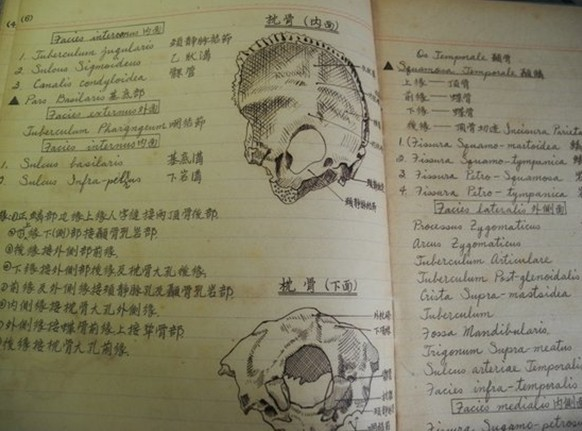 (6)
Facies internus 内面
1. Tuberculum jugularis 頚静脉結節
2. Sulcus Sigmoideus 乙狀溝
3. Canalis condyloidea 髁管
▲ Pars Basilaris 基底部
Facies externus 外面
Tuberculum Pharyngeum 咽結節
Facies internus 内面
1. Sulcus basilaris 基底溝
2. Sulcus Infra-petrus 下岩溝
正鱗部及緣上緣人字縫接兩頂骨後部
緣下側部接顳骨乳岩部
後緣接外側部前緣
下緣接外側部後緣及枕骨大孔後緣
前緣及外側緣接頚静脉孔及顳骨乳岩部
内側緣接枕骨大孔外側緣
外側緣接蝶骨前緣上接
後緣接枕骨大孔前緣
枕骨 (内面)
枕骨 (下面)
Os Temporale 顳骨
▲ Squamosa Temporale 顳鱗
上緣 — 頂骨
前緣 — 蝶骨
下緣 — 蝶骨
後緣 — 頂骨切迹 Incisura Pariet
1. (Fissura Squamo-mastoidea
2. Fissura Squamo-tympanica
3. Fissura Petro-Squamosa
4. Fissura Petro-tympanica
Facies lateralis 外側面
Processus Zygomaticus
Arcus Zygomaticus
Tuberculum Articulare
Tuberculum Post-glenoidalis
Crista Supra-mastoidea
Tuberculum
Fossa Mandibularis
Trigonum Supra-meatus
Sulcus arteriae Temporalis
Facies infra-temporalis
Facies medialis 内側面
Fissura Squamo-petrosa